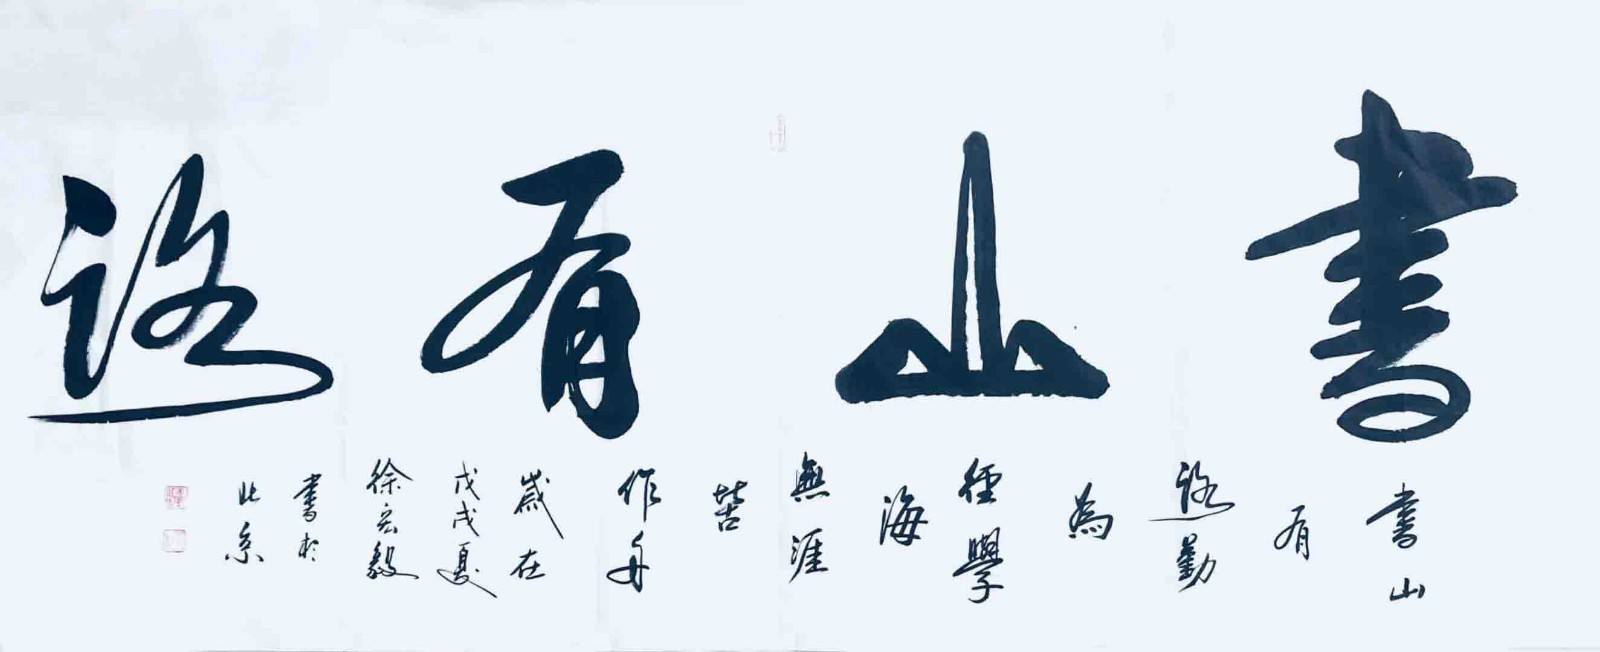 書山有路
書山
有
路勤
為
徑學
海
無涯
苦
作舟
歲在
戊戌夏
徐宏毅
書於
北京